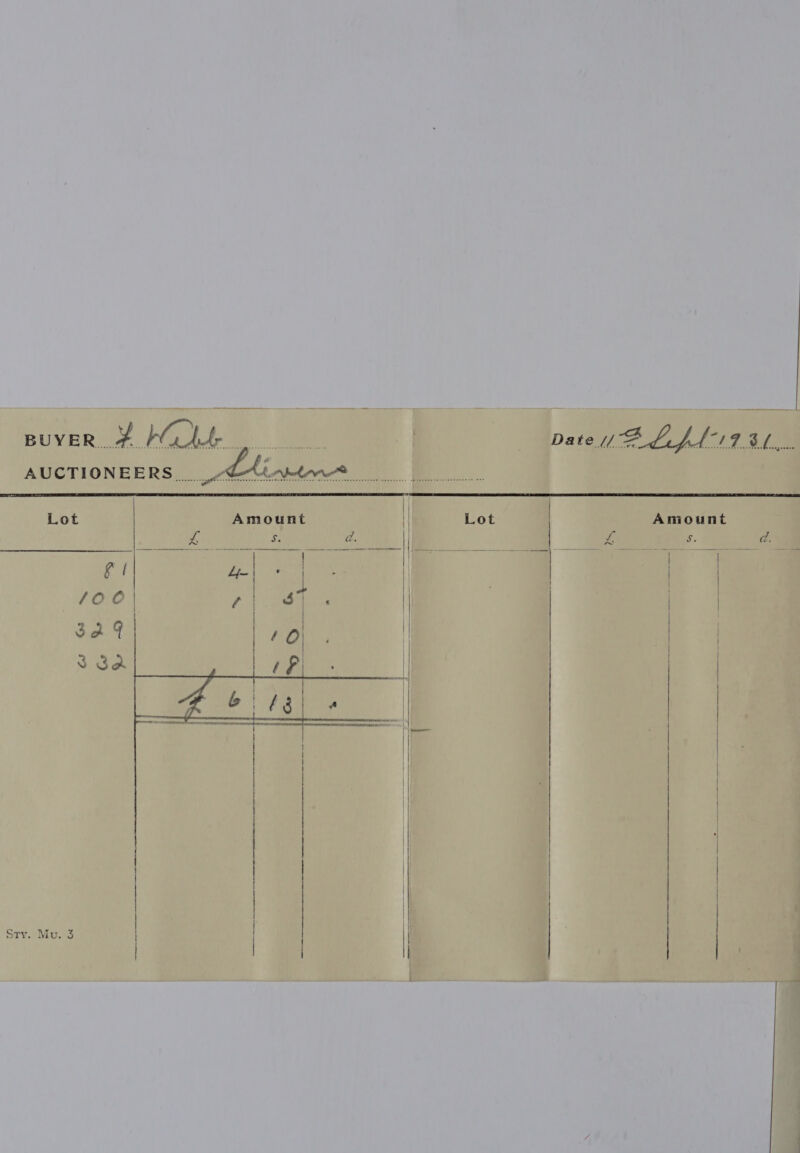 BUYER
Date 11 Sept 1931
AUCTIONEERS Stevens
Lot Amount Lot Amount
£ s. d. £ s. d.
81 4 . -
100 1 5 .
329 10 .
332 18 .
£ 6 13 .
Sty. Mu. 3